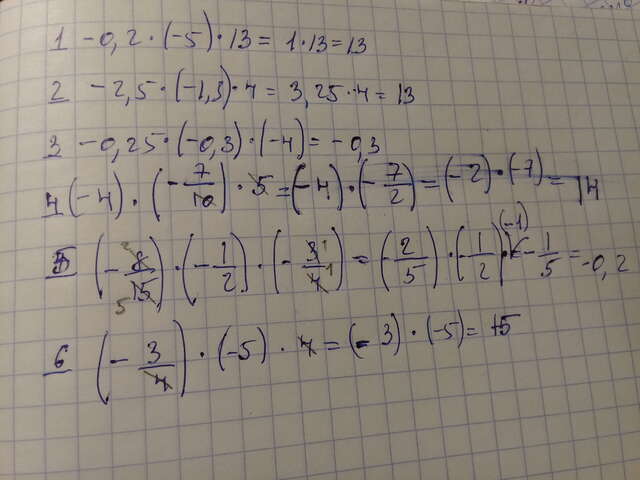 1 -0,2·(-5)·13 = 1·13 = 13
2 -2,5·(-1,3)·4 = 3,25·4 = 13
3 -0,25·(-0,3)·(-4) = -0,3
4 (-4)·(-7/10)·5 = (-4)·(-7/2) = (-2)·(-7) = 14
5 (-8/15)·(-1/2)·(-3/4) = (-2/5)·(-1/2)·(-1) = -1/5 = -0,2
6 (-3/4)·(-5)·4 = (-3)·(-5) = 15